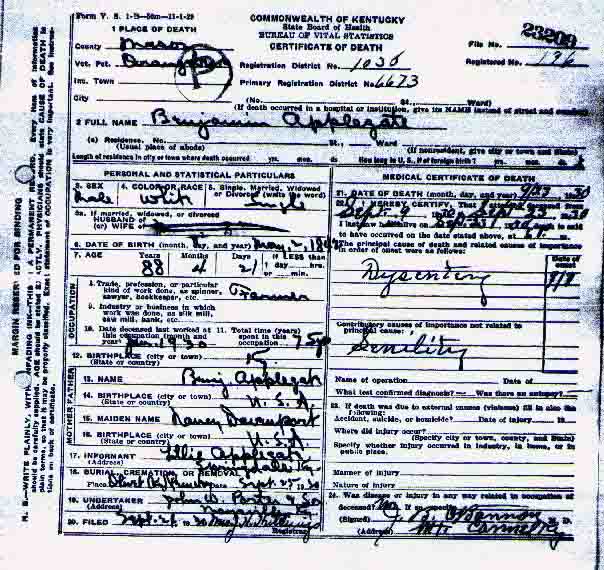 Form V. S. 1-B—50m—11-1-29
COMMONWEALTH OF KENTUCKY
State Board of Health
BUREAU OF VITAL STATISTICS
CERTIFICATE OF DEATH
23209
File No.
Registered No. 196
1 PLACE OF DEATH
County Mason
Vot. Pct.
Registration District No. 1030
Inc. Town
Primary Registration District No. 6673
City (No. St., Ward)
(If death occurred in a hospital or institution, give its NAME instead of street and number)
2 FULL NAME Benjamin Applegate
(a) Residence. No. St., Ward
(Usual place of abode) (If nonresident, give city or town and State)
Length of residence in city or town where death occurred yrs. mos. ds. How long in U. S., if of foreign birth? yrs. mos. ds.
PERSONAL AND STATISTICAL PARTICULARS
3. SEX Male
4. COLOR OR RACE White
5. Single, Married, Widowed or Divorced (write the word) Single
5a. If married, widowed, or divorced
HUSBAND of
(or) WIFE of
6. DATE OF BIRTH (month, day, and year) May 2, 1842
7. AGE Years Months Days If LESS than
88 4 21
1 day, hrs.
or min.
OCCUPATION
8. Trade, profession, or particular
kind of work done, as spinner,
sawyer, bookkeeper, etc. Farmer
9. Industry or business in which
work was done, as silk mill,
saw mill, bank, etc.
10. Date deceased last worked at
this occupation (month and
year) 1930
11. Total time (years)
spent in this
occupation 75 yo
12. BIRTHPLACE (city or town)
(State or country) Ky
FATHER
13. NAME Benj. Applegate
14. BIRTHPLACE (city or town)
(State or country) U. S. A
MOTHER
15. MAIDEN NAME Nancy Davenport
16. BIRTHPLACE (city or town)
(State or country) U. S. A
17 INFORMANT Applegate
(Address) Springdale Ky
18. BURIAL, CREMATION, OR REMOVAL
Place Date Sept. 25 1930
19. UNDERTAKER John W. Porter & Son
(Address) Maysville Ky
20. FILED 30
Registrar
MEDICAL CERTIFICATE OF DEATH
21. DATE OF DEATH (month, day, and year) 9/23 30
22. I HEREBY CERTIFY, That I attended deceased from
Sept. 9 30 to Sept 23 30
I last saw h alive on Sept death is said
to have occurred on the date stated above, at m.
The principal cause of death and related causes of importance
in order of onset were as follows:
Date of
onset
Dysentery 9/9
Contributory causes of importance not related to
principal cause:
Senility
Name of operation Date of
What test confirmed diagnosis? Was there an autopsy?
23. If death was due to external causes (violence) fill in also the
following:
Accident, suicide, or homicide? Date of injury 19
Where did injury occur?
(Specify city or town, county, and State)
Specify whether injury occurred in industry, in home, or in
public place.
Manner of injury
Nature of injury
24. Was disease or injury in any way related to occupation of
deceased? No If so, specify
(Signed)
(Address) Mt. Carmel Ky
MARGIN RESERVED FOR BINDING